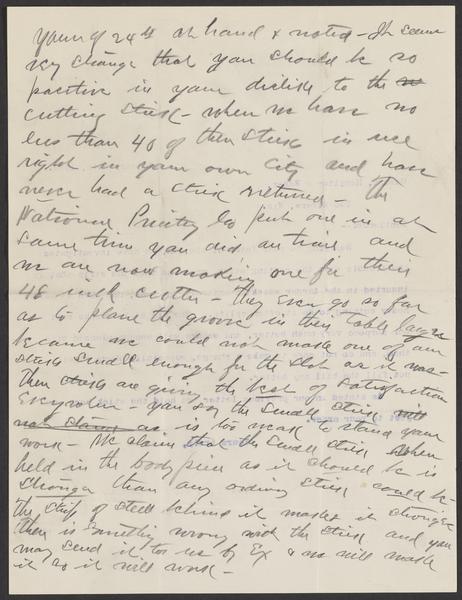 Yours of 24th at hand & noted - It seems
very strange that you should be so
positive in your dislike to the
cutting stick - when we have no
less than 40 of these sticks in use
right in your own city and have
never had a stick returned - The
National Printing Co put one in at
same time you did on trial and
we are now making one for their
48 inch cutter - they even go so far
as to plane the groove in their table larger
because we could not make one of our
sticks small enough for the slot as it was -
These sticks are giving the best of satisfaction
Everywhere - you say the small stick
as is too weak to stand your
work - We claim that the small stick when
held in the body piece as it should be is
stronger than any ordinary stick could be -
the strip of steel behind it makes it stronger
there is something wrong with the stick and you
may send it to us by Ex & we will make
it so it will work -